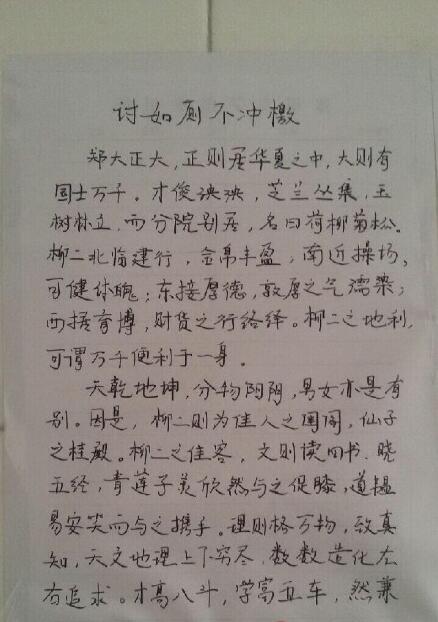 讨如厕不冲檄
郑大正大，正则居华夏之中，大则有
国士万千。才俊泱泱，芝兰丛集，玉
树林立，而分院别居，名曰荷柳菊松。
柳二北临建行，金帛丰盈，南近操场，
可健体魄；东接厚德，敦厚之气濡染；
西据育博，财货之行络绎。柳二之地利，
可谓万千便利于一身。
天乾地坤，分物阴阳，男女亦是有
别。因是，柳二则为佳人之闺阁，仙子
之桂殿。柳二之佳客，文则读四书、晓
五经，青莲子美欣然与之促膝，道韫
易安笑而与之携手。理则格万物，致真
知，天文地理上下穷尽，数数造化左
右追求。才高八斗，学富五车，然兼